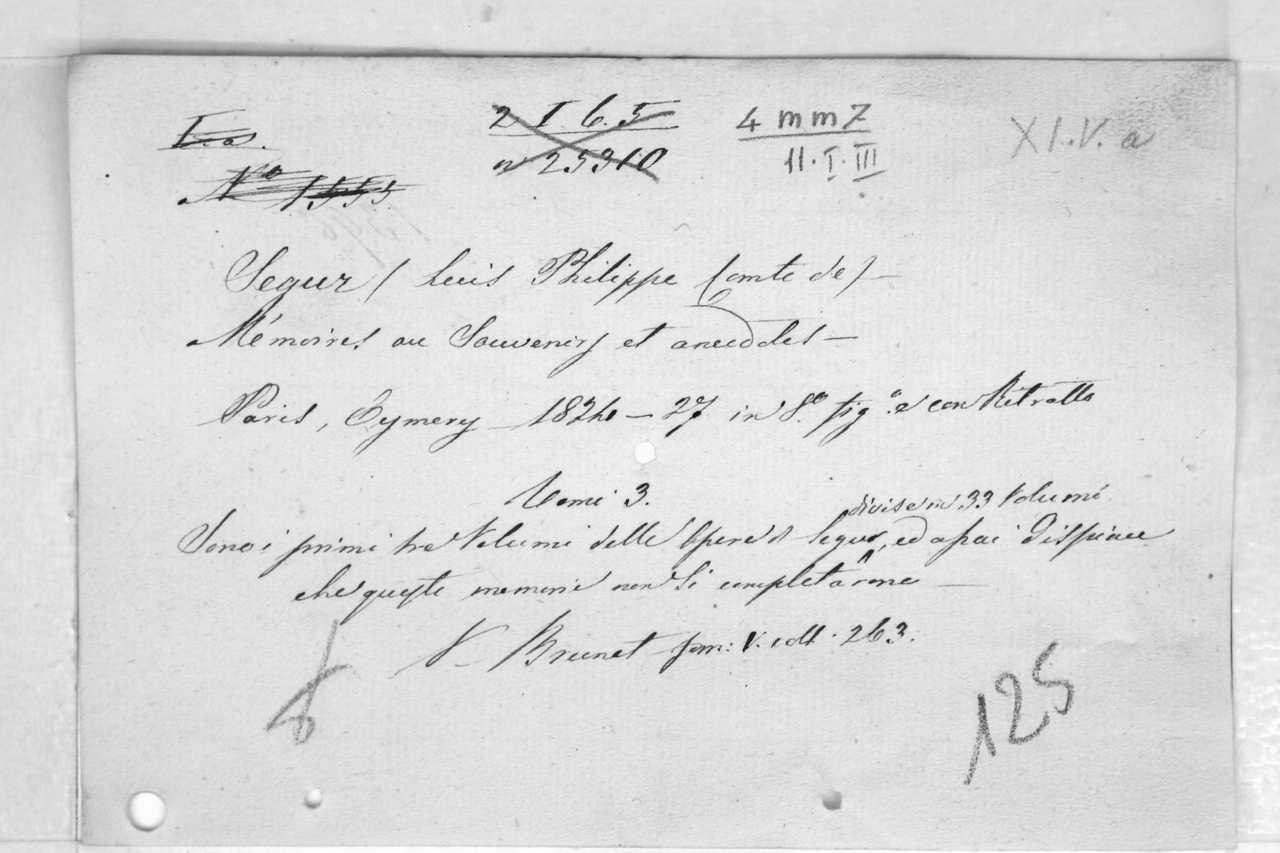 I. a.
2 I. 6. 5
4 mm Z
XI. V. a
Nº 1555
nº 25310
11. I. III
Segur (Louis Philippe Comte de) —
Mémoires ou Souvenirs et anecdotes —
Paris, Eymery 1824 — 27 in 8º fig.º e con Ritratto
Tomi 3.
divise in 33 Volumi
Sono i primi tre Volumi delle Opere di Segur, ed
che queste memorie non si
V. Brunet Tom: V. 263.
8
125